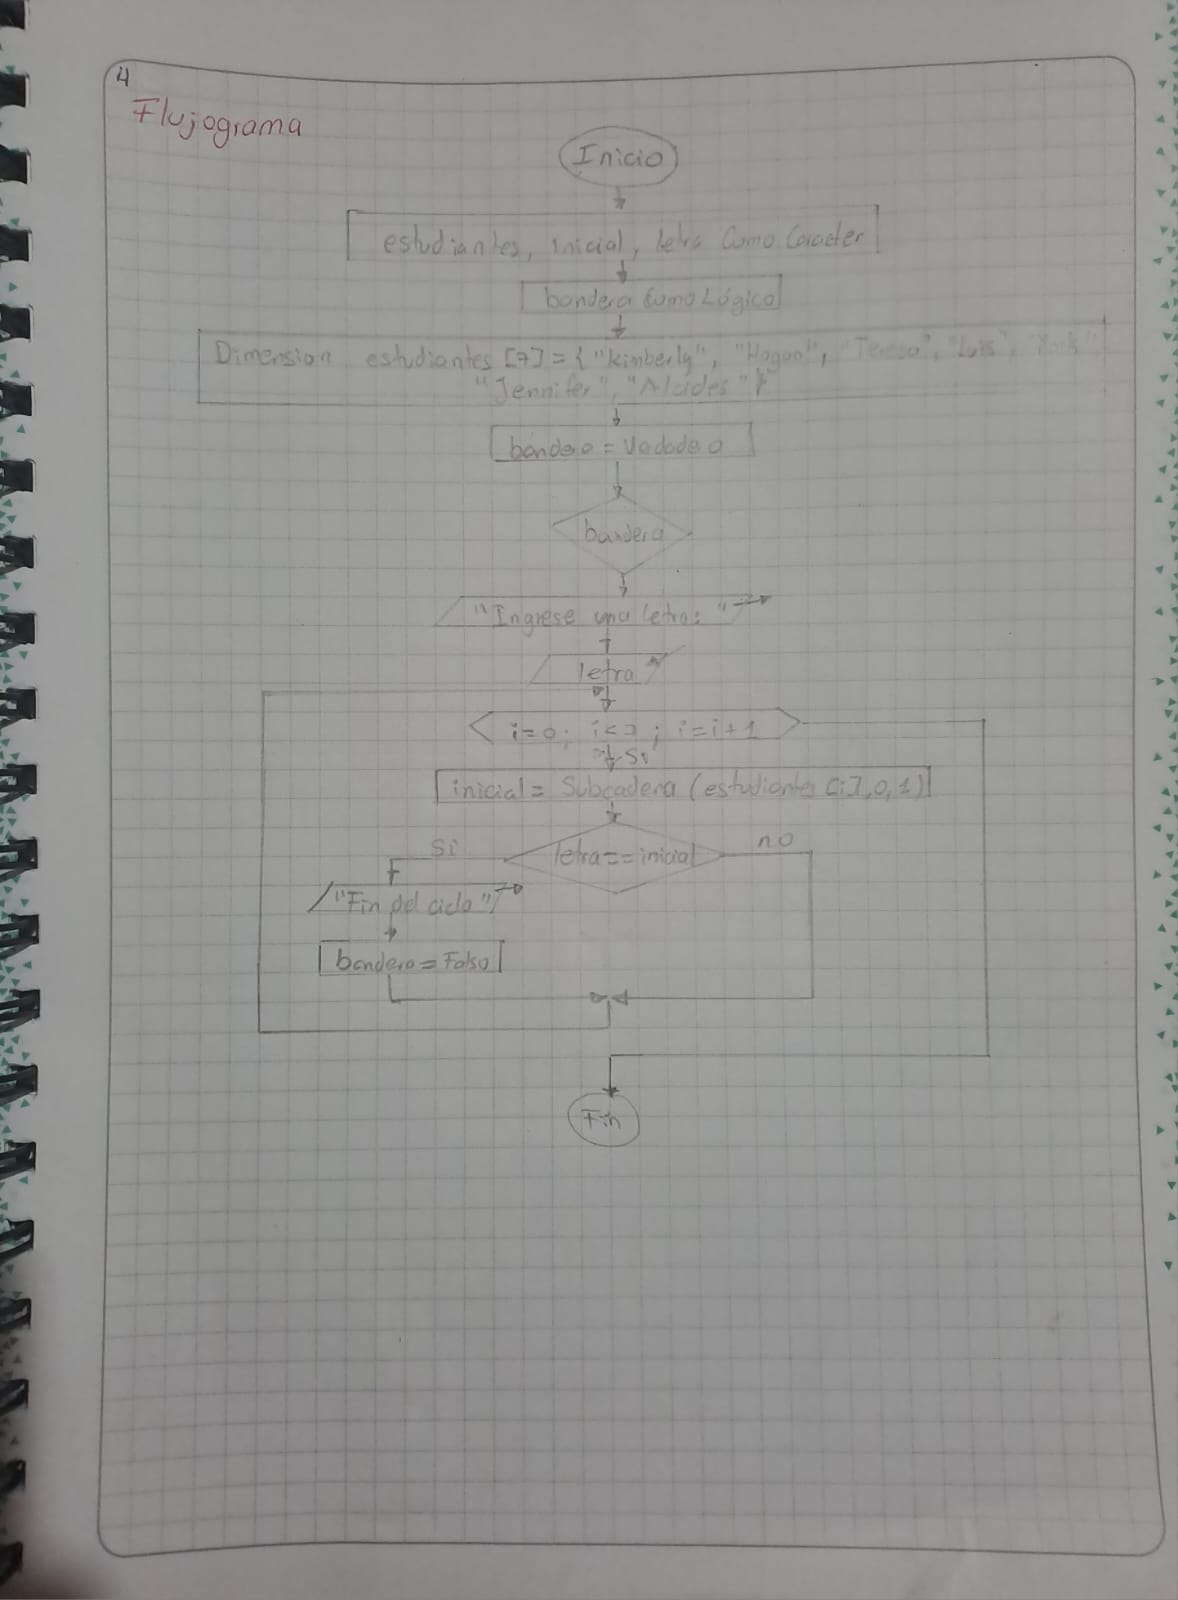 4
Flujograma
Inicio
estudiantes, inicial, letra Como Caracter
bandera Como Lógico
Dimension estudiantes [7] = { "Kimberly", "Hogan", "Teresa", "Luis",
"Jennifer", "Alcides" }
bandera = Vedadero
bandera
"Ingrese una letra: "
letra
i=0; i<7; i=i+1
Si
inicial = Subcadena (estudiantes [i],0,1)
Si letra==inicial no
"Fin del ciclo"
bandera = Falso
Fin